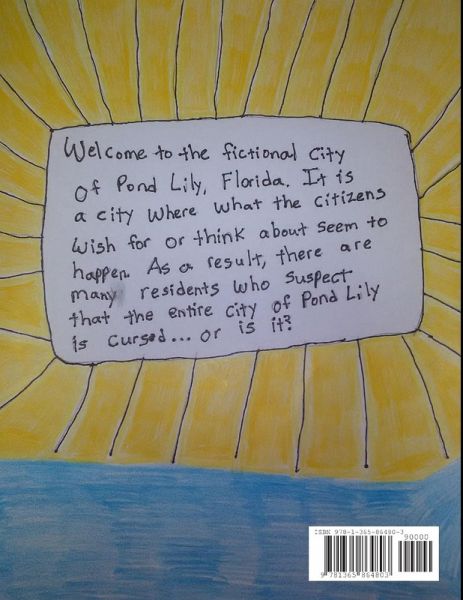 Welcome to the fictional City
of Pond Lily, Florida. It is
a city where what the citizens
wish for or think about seem to
happen. As a result, there are
many residents who suspect
that the entire city of Pond Lily
is cursed... or is it?
ISBN 978-1-365-86480-3
90000
9 781365 864803